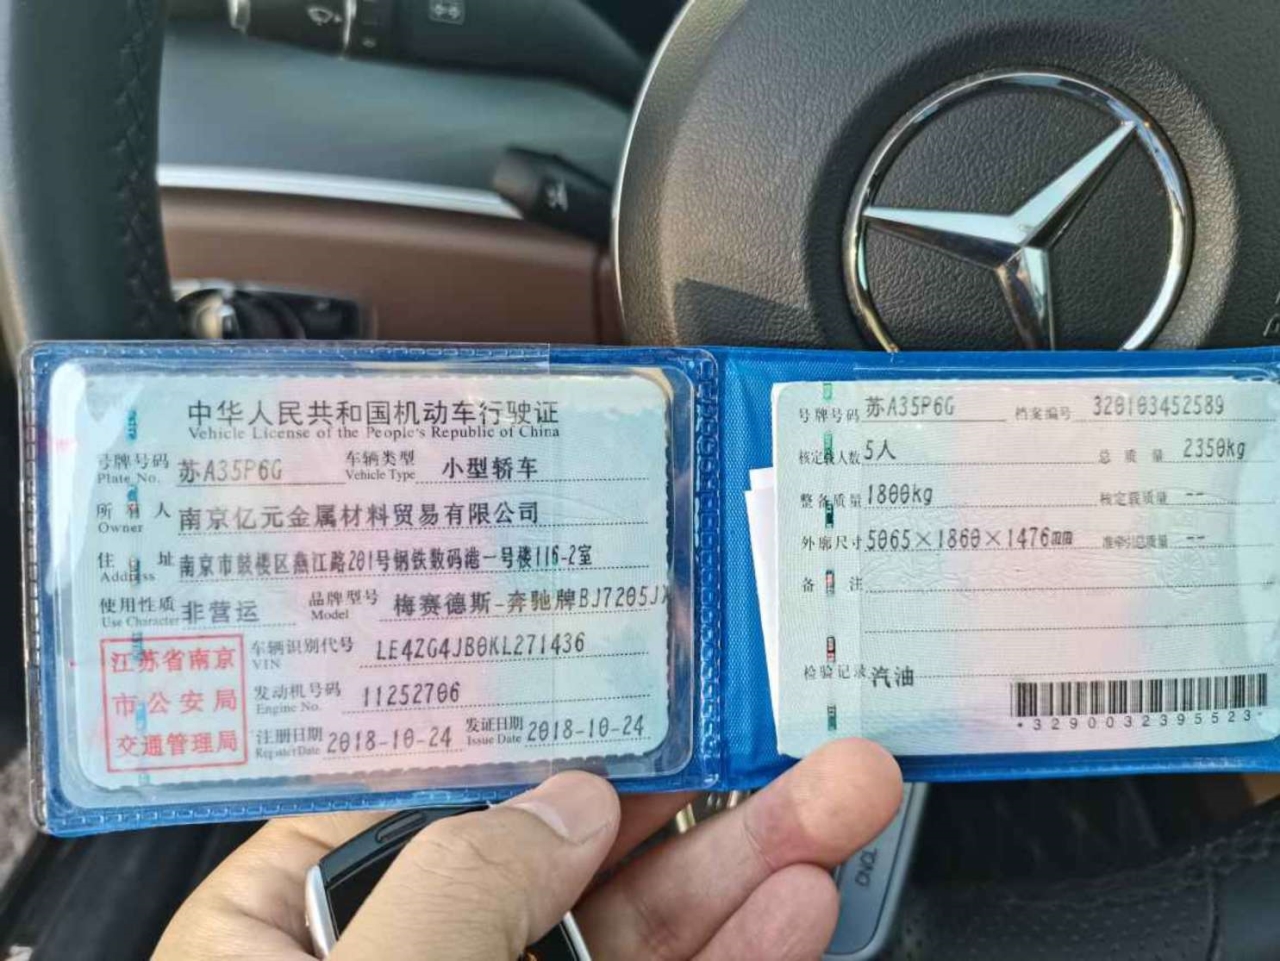 中华人民共和国机动车行驶证
Vehicle License of the People's Republic of China
号牌号码 苏A35P6G 车辆类型 小型轿车
Plate No. Vehicle Type
所有人 南京亿元金属材料贸易有限公司
Owner
住址 南京市鼓楼区燕江路201号钢铁数码港一号楼116-2室
Address
使用性质 非营运 品牌型号 梅赛德斯-奔驰牌BJ7205J
Use Character Model
江苏省南京
市公安局
交通管理局
车辆识别代号 LE4ZG4JB0KL271436
VIN
发动机号码 11252706
Engine No.
注册日期 2018-10-24 发证日期 2018-10-24
Register Date Issue Date
号牌号码 苏A35P6G 档案编号 320103452589
核定载人数 5人 总质量 2350kg
整备质量 1800kg 核定载质量 --
外廓尺寸 5065×1860×1476㎜ 准牵引总质量 --
备注
检验记录 汽油
*3290032395523*